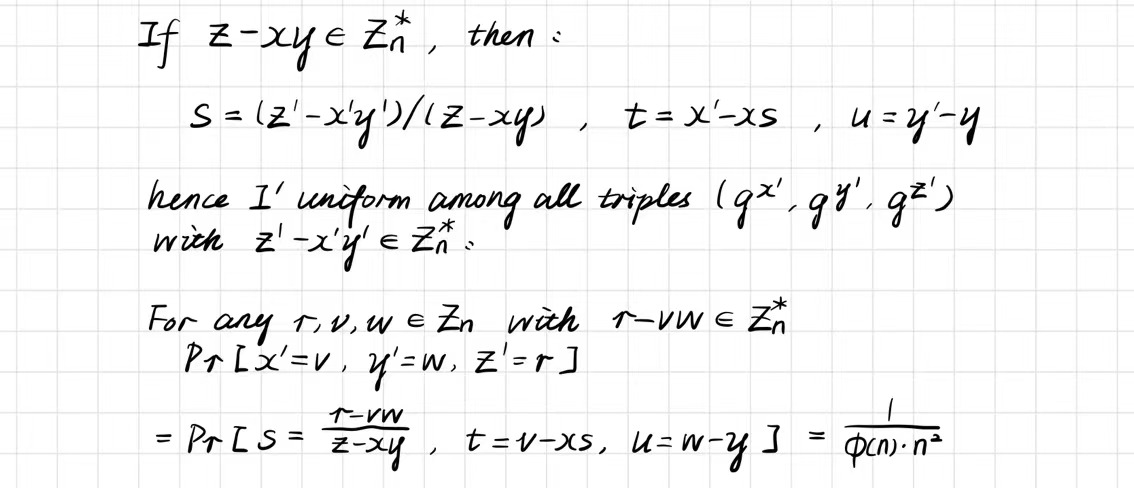 If z-xy ∈ Zn*, then :
s = (z'-x'y')/(z-xy) , t = x'-xs , u = y'-y
hence I' uniform among all triples (g^x', g^y', g^z')
with z'-x'y' ∈ Zn* :
For any r, v, w ∈ Zn with r-vw ∈ Zn*
Pr[x'=v, y'=w, z'=r]
= Pr[s = (r-vw)/(z-xy), t = v-xs, u = w-y] = 1/(ϕ(n)·n²)